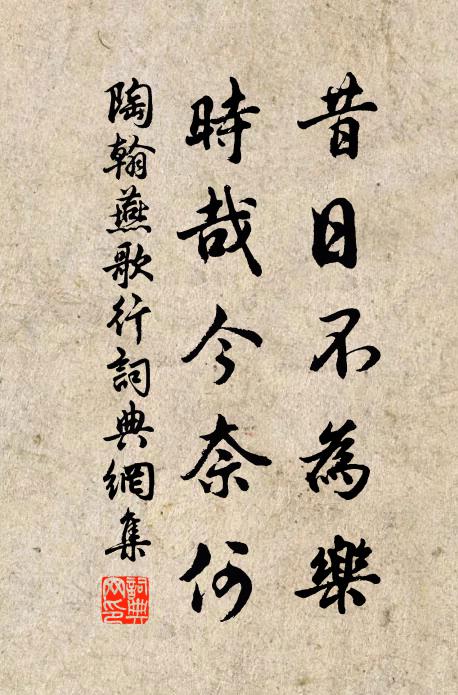 昔日不為樂
時哉今奈何
陶翰燕歌行詞典網集
詞典网印